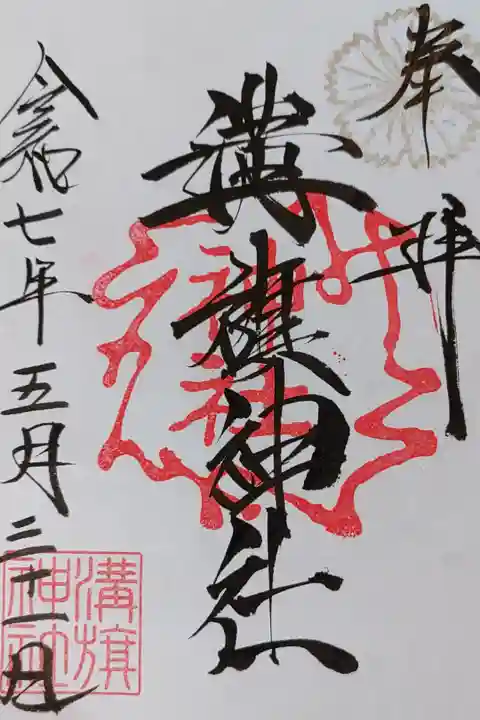 奉拝
溝旗神社
神社
令和七年五月三十一日
溝旗
神社